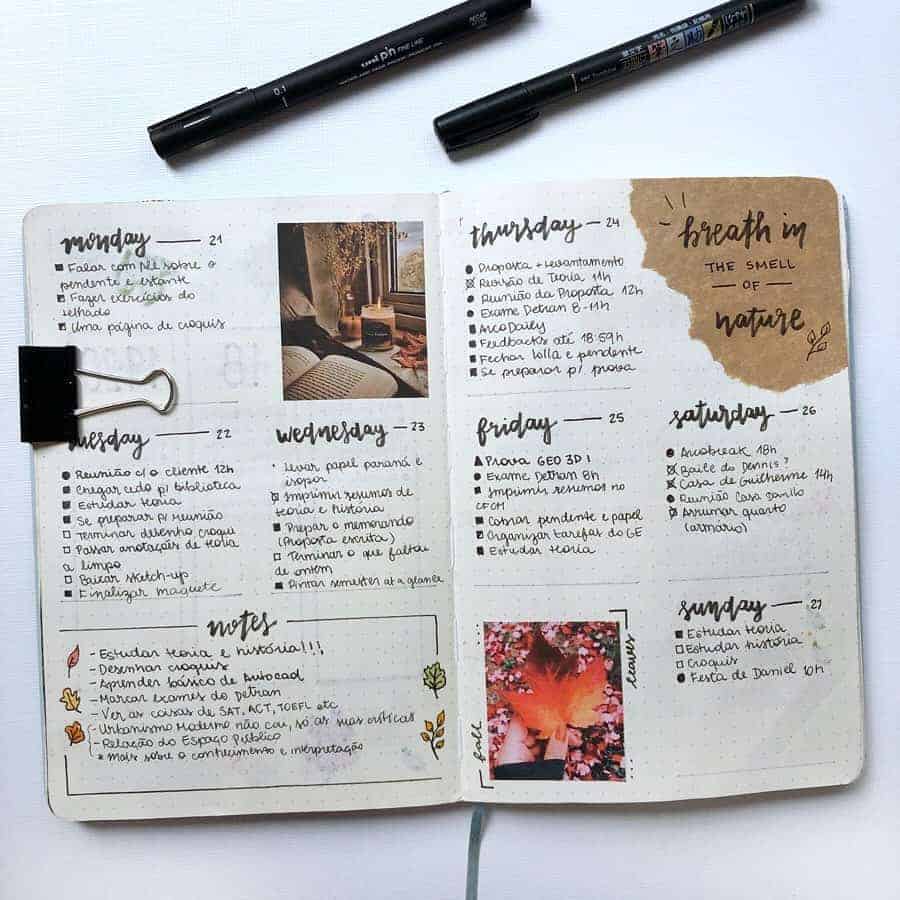 0.1
uni pin FINE LINE
monday 21
Falar com Nil sobre o
pendente e estante
Fazer exercícios do
telhado
Uma página de croquis
tuesday 22
Reunião c/ o cliente 12h
Chegar cedo p/ biblioteca
Estudar teoria
Se preparar p/ reunião
Terminar desenho croqui
Passar anotações de teoria
a limpo
Baixar sketch-up
Finalizar maquete
wednesday 23
Levar papel paraná e
isopor
Imprimir resumos de
teoria e história
Prepar o memorando
(Proposta escrita)
Terminar o que faltou
de ontem
Pintar semester at a glance
notes
- Estudar teoria e história!!!
- Desenhar croquis
- Aprender básico de Autocad
- Marcar exames do Detran
- Ver as coisas de SAT, ACT, TOEFL etc
- Urbanismo Moderno não cai, só as suas críticas
- Relação do Espaço Público
* Mais sobre o conhecimento e interpretação
thursday 24
Proposta + Levantamento
Revisão de Teoria 11h
Reunião da Proposta 12h
Exame Detran 8-11h
ArcoDaily
Feedbacks até 18:59h
Fechar lolla e pendente
Se preparar p/ prova
breath in
THE SMELL
OF
nature
friday 25
Prova GEO 3D!
Exame Detran 8h
Imprimir resumos no
CFCH
Cobrar pendente e papel
Organizar tarefas do GE
Estudar teoria
saturday 26
Arcobreak 18h
Baile do Dennis?
Casa de Guilherme 14h
Reunião Casa Danilo
Arrumar quarto
(armário)
fall
leaves
sunday 27
Estudar teoria
Estudar história
Croquis
Festa de Daniel 10h